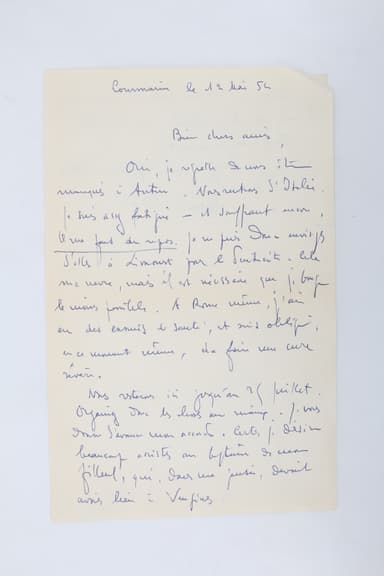 Lourmarin le 12 Mai 54
Bien chers amis,
Oui, je regrette de nous être
manqués à Autun. Nous rentrons d'Italie.
Je suis assez fatigué — et souffrant encore,
Il me faut du repos. Je ne puis donc envisager
d'aller à Limoust par la Cela
me navre, mais il est nécessaire que je bouge
le moins possible. A Rome même, j'ai
eu des ennuis de santé, et suis obligé,
en ce moment même, de faire une cure
sévère.
Nous restons ici jusqu'au 25 juillet.
donc les choses au mieux. Je vous
donne d'avance mon accord. Certes je désire
beaucoup assister au baptême de mon
filleul, qui, dans ma pensée, devait
avoir lieu à